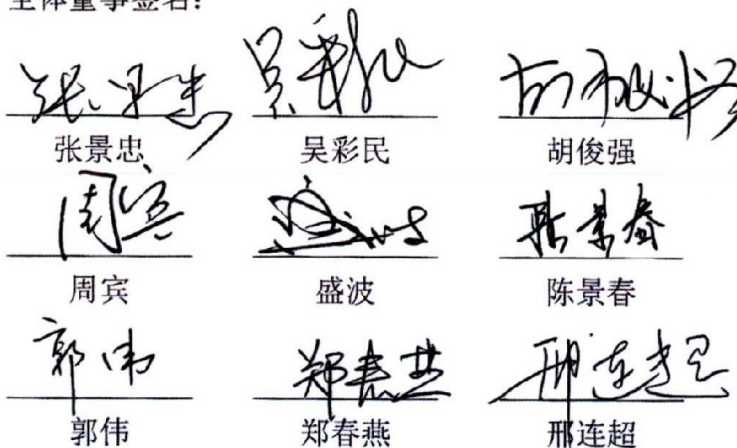 全体董事签名：
张景忠 吴彩民 胡俊强
周宾 盛波 陈景春
郭伟 郑春燕 邢连超